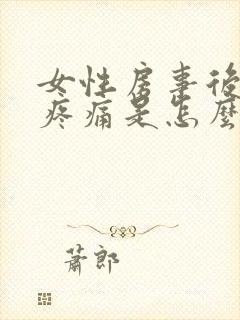 女性房事後
疼痛是怎麼
蕭郎